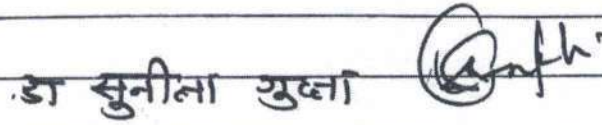 डा सुनीता गुप्ता